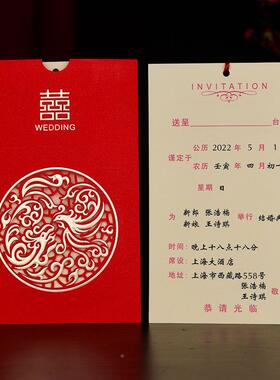 囍
WEDDING
INVITATION
送呈 台
谨定于
公历 2022 年 5 月 1
农历 壬寅 年 四 月 初一
星期 日
为 新郎 张浩楠 举行 结婚典
新娘 王诗琪
时间：晚上十八点十八分
席设：上海大酒店
地址：上海市西藏路558号
张浩楠
王诗琪 敬
恭请光临